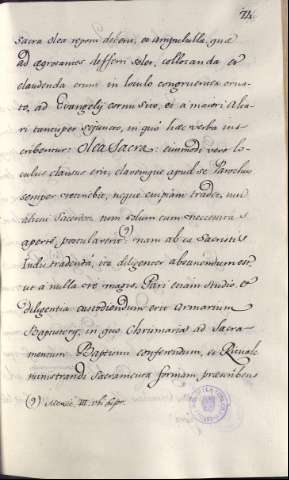 74.
Sacra olea reponi debent, ea ampulalla, quæ
ad ægrotantes differri solet, collocanda et
claudenda erunt in loculo congruenter orna-
to, ad Evangelij cornu sito, et à maiori Alta-
ri tantisper sejuncto, in quo hæc verba ins-
cribentur: Olea Sacra: eiusmodi vero lo-
culus clausus erit, clavemque apud se Parochus
semper retinebit, neque cuipiam tradet, nisi
alicui Sacerdoti tum solum cum necessitas
aperte postulaverit (9) nam ab ea Sacristis
Indis tradenda, ita diligenter abstinendum est,
ut à nulla re magis. Pari etiam studio, et
diligentia custodiendum erit Armarium
Baptistery, in quo Chrismatis ad Sacra-
mentum Baptismi conferendum, et Rituale
ministrandi Sacramenta formam præscribens
(9) Mexic. III. ubi supr.